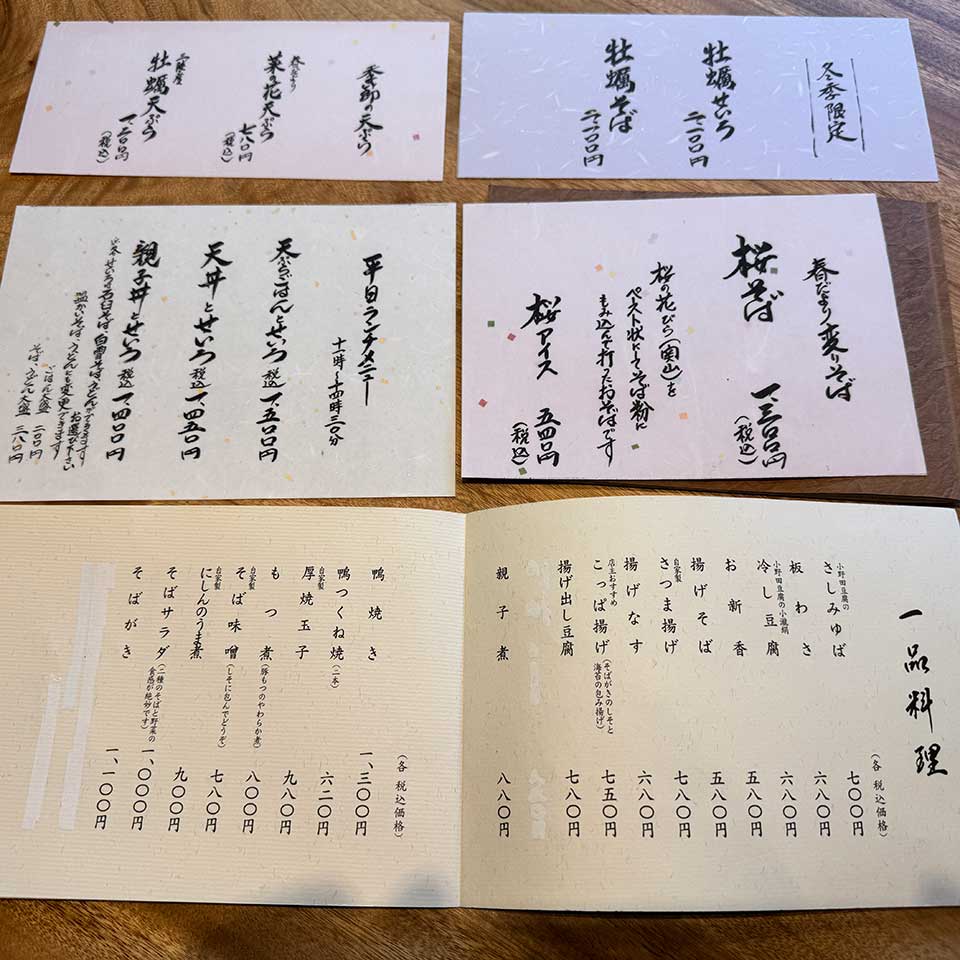 季節の天ぷら
春だより
菜の花天ぷら
七八〇円
(税込)
三陸産
牡蠣天ぷら
一、二〇〇円
(税込)
冬季限定
牡蠣せいろ
二、一〇〇円
牡蠣そば
二、一〇〇円
平日ランチメニュー
十一時〜十四時三〇分
天ぷらごはんとせいろ 税込 一、五〇〇円
天丼とせいろ 税込 一、四五〇円
親子丼とせいろ 税込 一、四〇〇円
せいろは石臼そば、白雪そば、うどんができます
お選び下さい
温かいそば、うどんにも変更できます
ごはん大盛 二〇〇円
そば、うどん大盛 三八〇円
春だより変りそば
桜そば
一、三〇〇円
(税込)
桜の花びら(関山)を
ペースト状にしてそば粉に
もみ込んで打ったおそばです
桜アイス 五四〇円
(税込)
一品料理
(各 税込価格)
小野田豆腐の
さしみゆば 七〇〇円
板わさ 六八〇円
小野田豆腐の小瀧絹
冷し豆腐 六八〇円
お新香 五八〇円
揚げそば 五八〇円
自家製
さつま揚げ 七八〇円
揚げなす 六八〇円
店主おすすめ
こっぱ揚げ(そばがきのしそと海苔の包み揚げ) 七五〇円
揚げ出し豆腐 七八〇円
親子煮 八八〇円
(各 税込価格)
鴨焼き 一、三〇〇円
鴨つくね焼(二本) 六二〇円
自家製
厚焼玉子 九八〇円
もつ煮(豚もつのやわらか煮) 八〇〇円
自家製
そば味噌(しそに包んでどうぞ) 七八〇円
自家製
にしんのうま煮 九〇〇円
そばサラダ(二種のそばと野菜の食感が絶妙です) 一、〇〇〇円
そばがき 一、一〇〇円